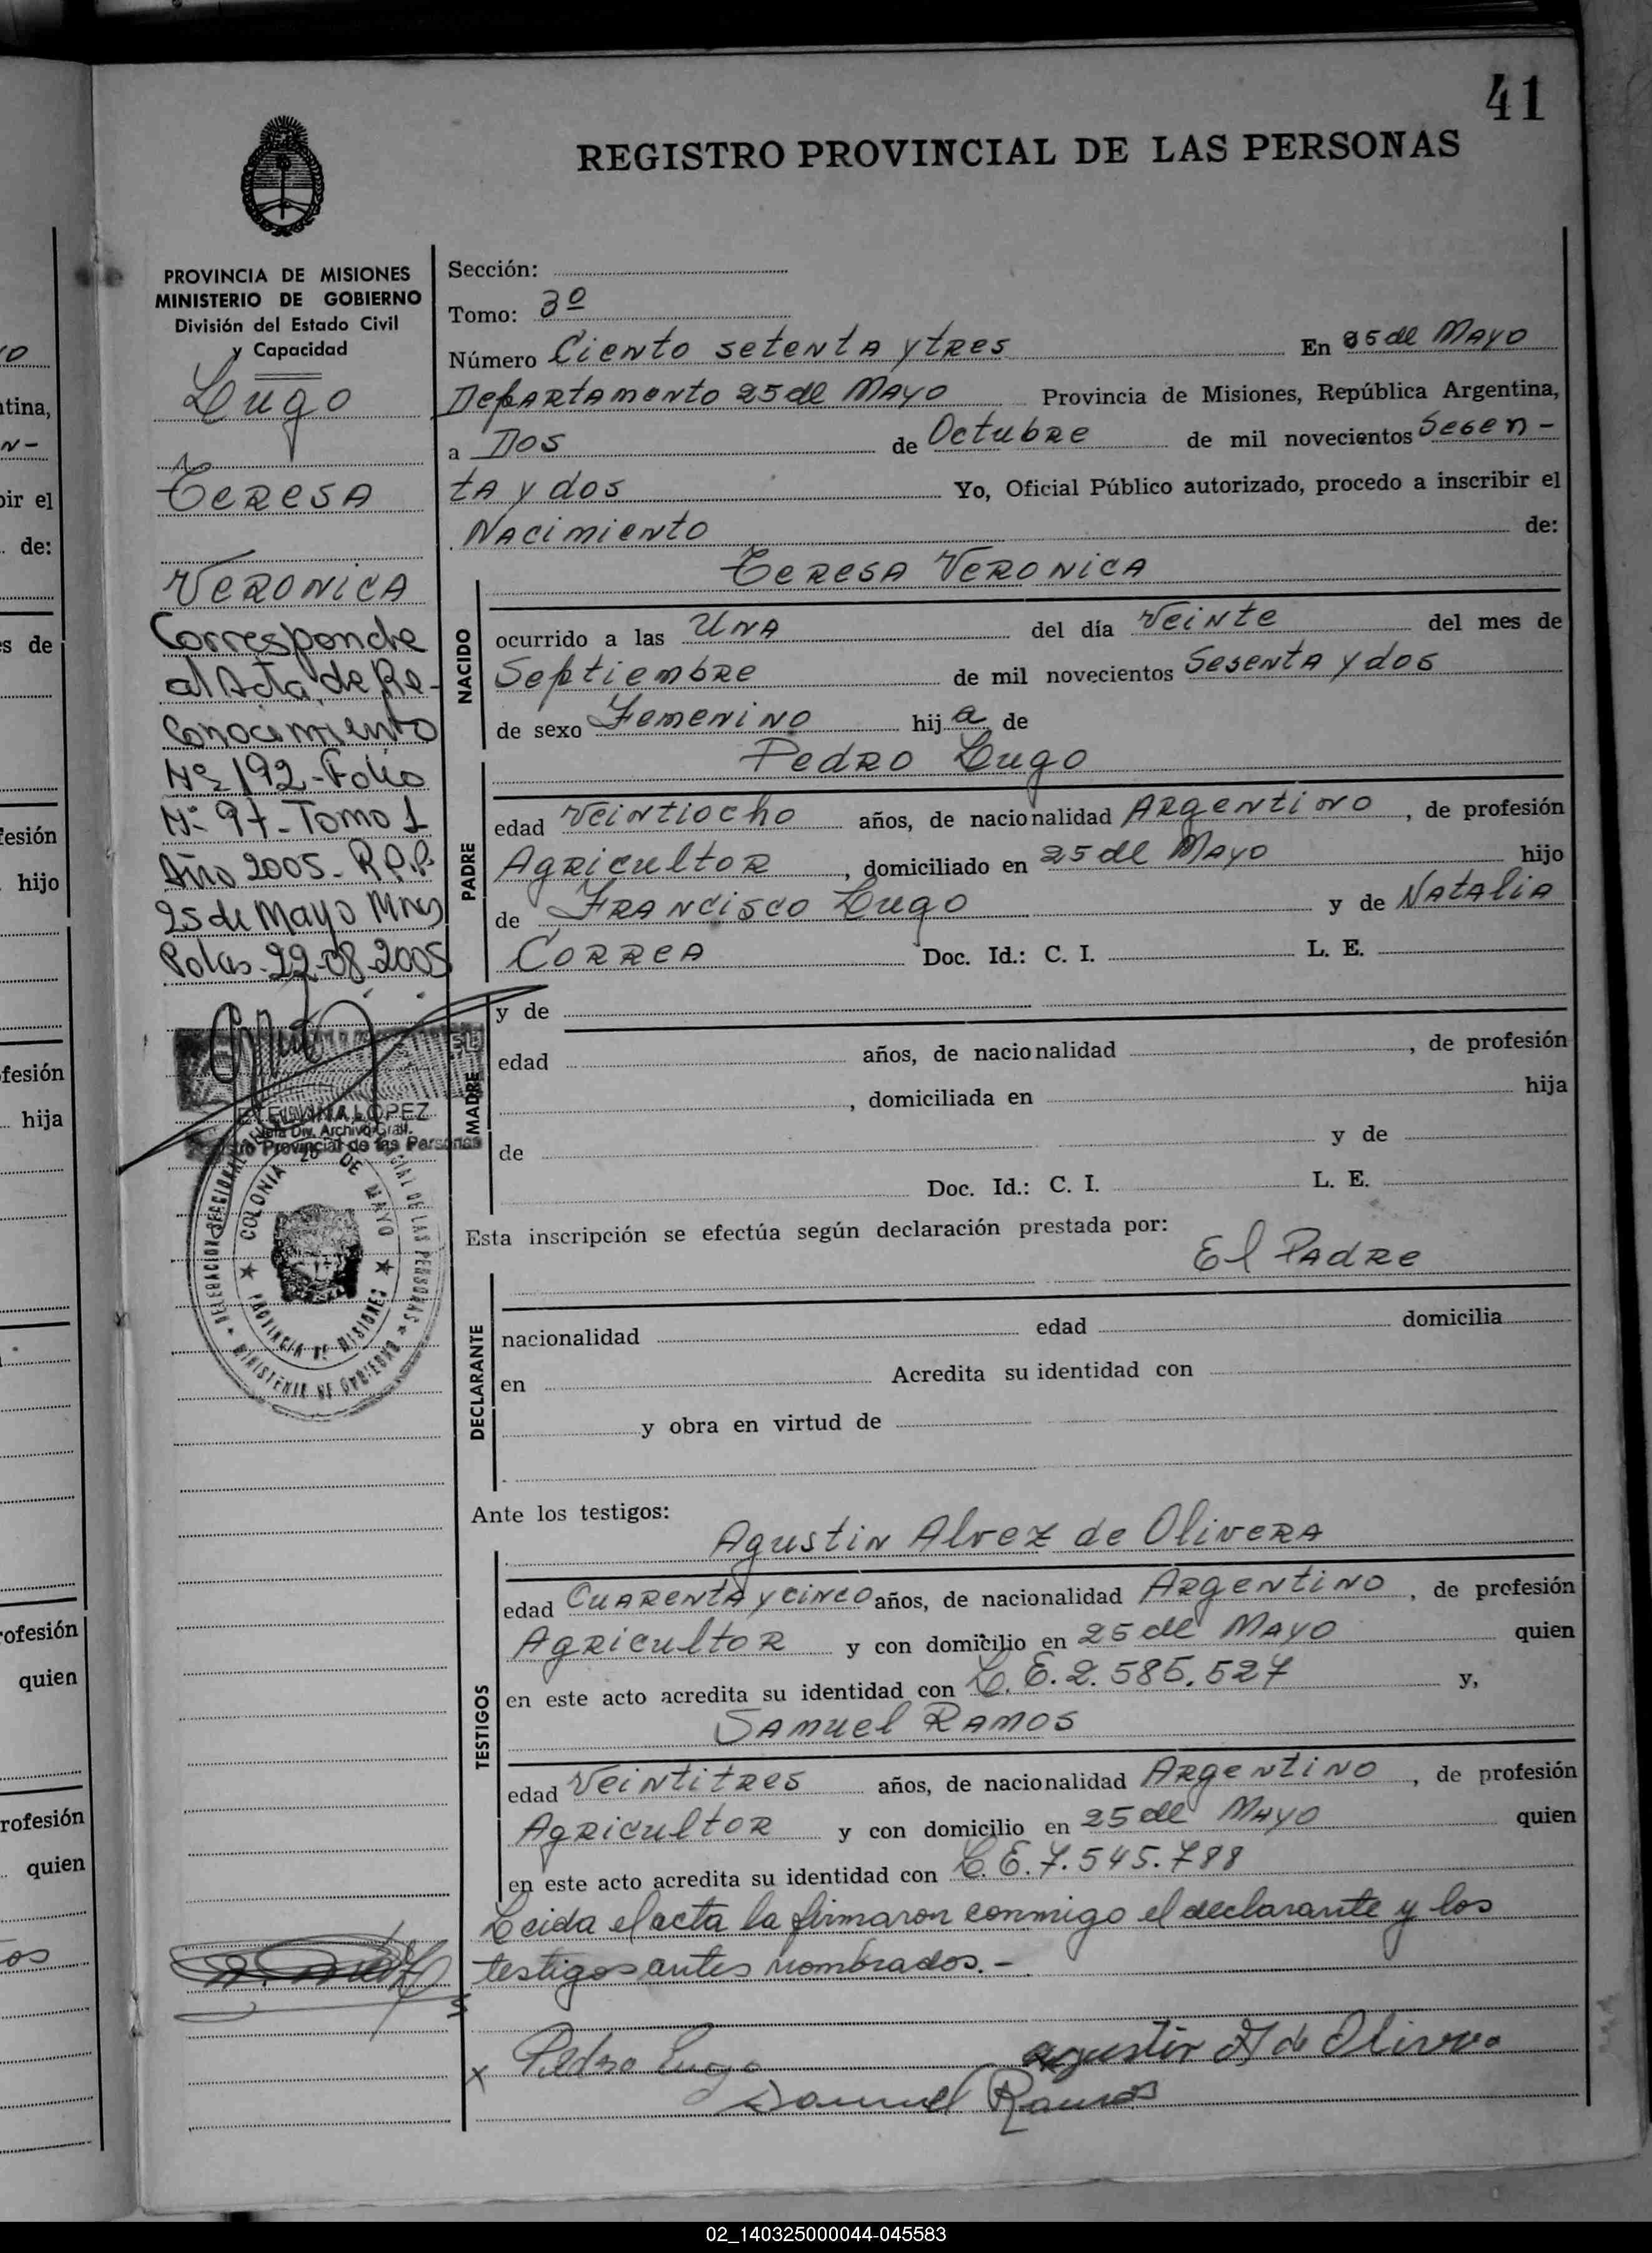 41
REGISTRO PROVINCIAL DE LAS PERSONAS
PROVINCIA DE MISIONES
MINISTERIO DE GOBIERNO
División del Estado Civil
y Capacidad
Lugo
Teresa
Veronica
Corresponde
al Acta de Re-
conocimiento
Nº 192 - Folio
Nº 97 - Tomo 1
Año 2005 - R.P.P.
25 de Mayo Mnes
Pdas. 22-08-2005
LOPEZ
Jefa Div. Archivo Gral.
Provincial de las Personas
COLONIA 25 DE MAYO
PROVINCIA DE MISIONES
DELEGACION SECCIONAL DE LAS PERSONAS
MINISTERIO DE GOBIERNO
Sección:
Tomo: 3º
Número Ciento setenta y tres En 25 de Mayo
Departamento 25 de Mayo Provincia de Misiones, República Argentina,
a Dos de Octubre de mil novecientos Sesen-
ta y dos Yo, Oficial Público autorizado, procedo a inscribir el
Nacimiento de:
Teresa Veronica
NACIDO
ocurrido a las Una del día Veinte del mes de
Septiembre de mil novecientos Sesenta y dos
de sexo Femenino hija de
Pedro Lugo
PADRE
edad Veintiocho años, de nacionalidad Argentino, de profesión
Agricultor, domiciliado en 25 de Mayo hijo
de Francisco Lugo y de Natalia
Correa Doc. Id.: C. I. L. E.
MADRE
y de
edad años, de nacionalidad , de profesión
, domiciliada en hija
de y de
Doc. Id.: C. I. L. E.
Esta inscripción se efectúa según declaración prestada por:
El Padre
DECLARANTE
nacionalidad edad domicilia
en Acredita su identidad con
y obra en virtud de
Ante los testigos:
Agustin Alvez de Olivera
TESTIGOS
edad Cuarenta y cinco años, de nacionalidad Argentino, de profesión
Agricultor y con domicilio en 25 de Mayo quien
en este acto acredita su identidad con L.E. 2.585.527 y,
Samuel Ramos
edad Veintitres años, de nacionalidad Argentino, de profesión
Agricultor y con domicilio en 25 de Mayo quien
en este acto acredita su identidad con L.E. 7.545.788
Leida el acta la firmaron conmigo el declarante y los
testigos antes nombrados.-
x Pedro Lugo agustin A de Olivera
Samuel Ramos
02_140325000044-045583